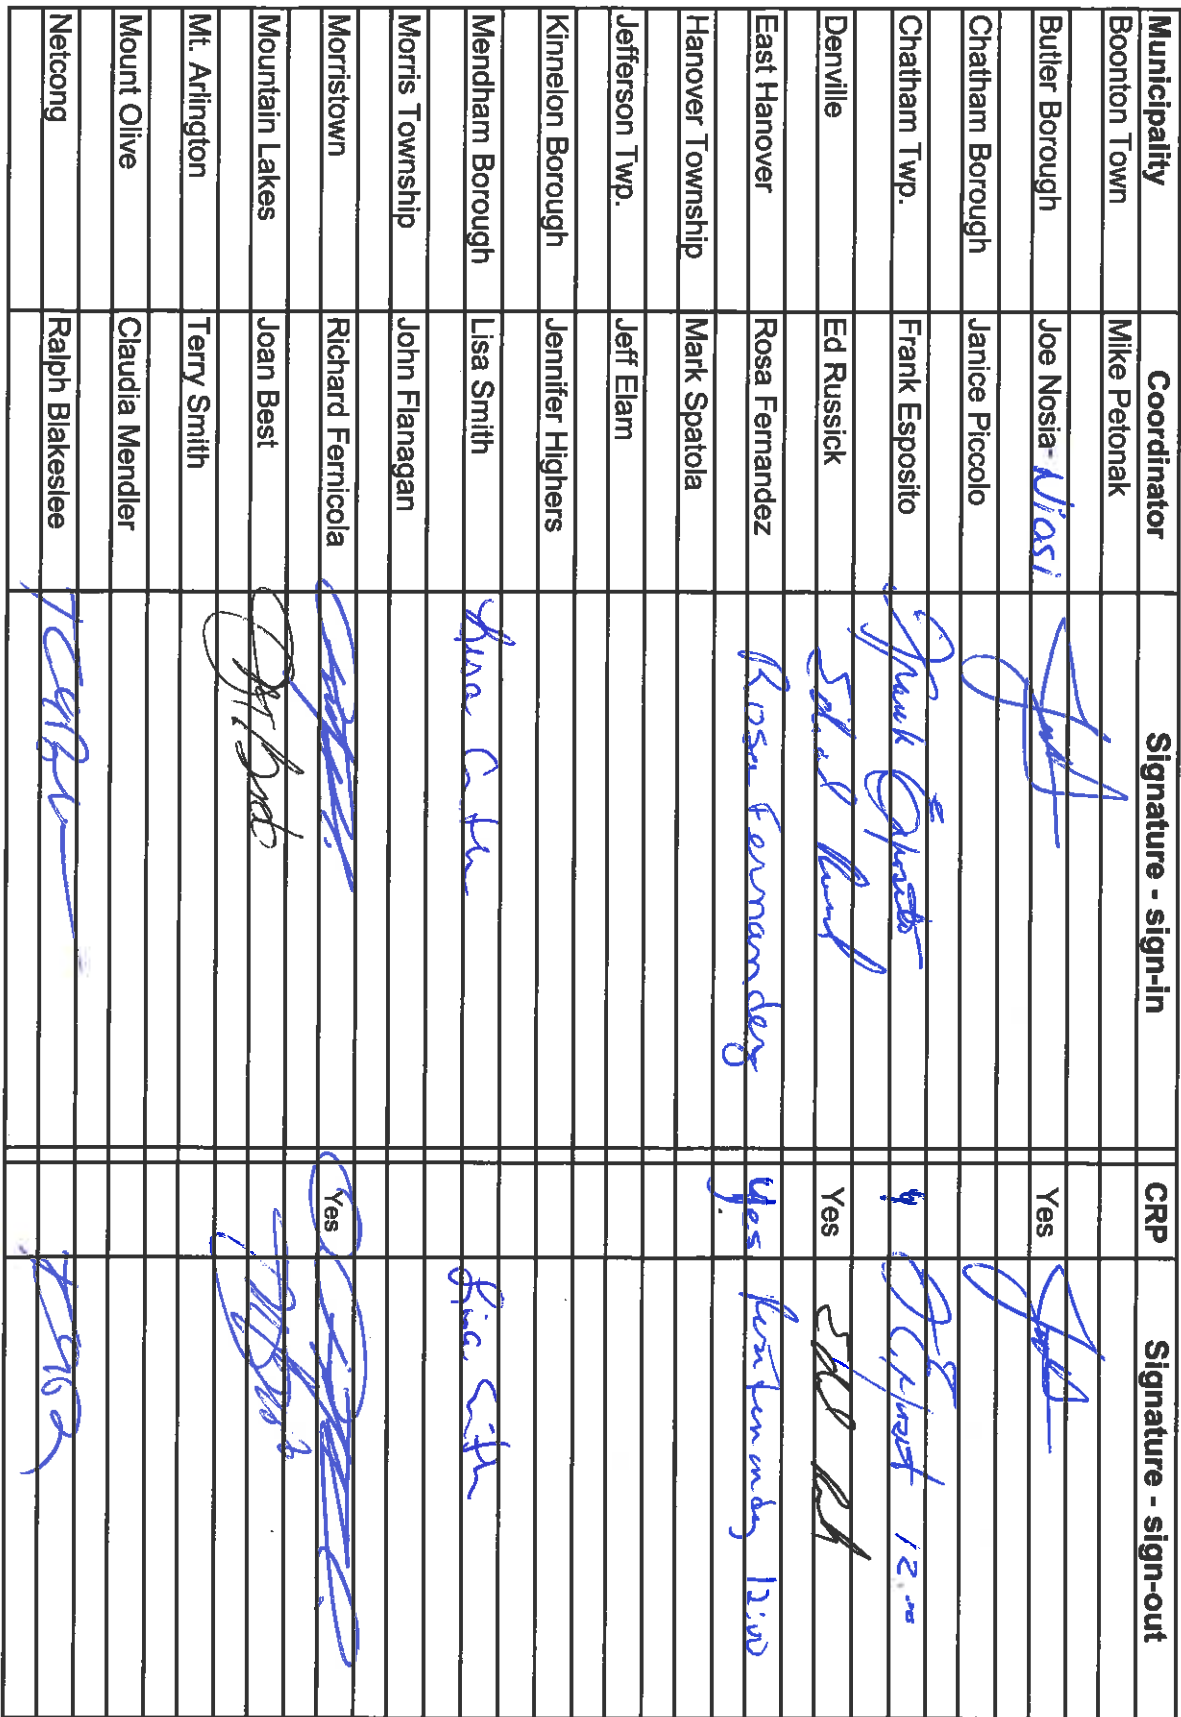 Municipality Coordinator Signature - sign-in CRP Signature - sign-out
Boonton Town Mike Petonak
Butler Borough Joe Nosia- Niosi Yes
Chatham Borough Janice Piccolo
Chatham Twp. Frank Esposito Frank Esposito y 12:00
Denville Ed Russick Yes
East Hanover Rosa Fernandez Rosa Fernandez Yes 12:00
Hanover Township Mark Spatola
Jefferson Twp. Jeff Elam
Kinnelon Borough Jennifer Highers
Mendham Borough Lisa Smith Lisa Smith
Morris Township John Flanagan
Morristown Richard Fernicola Yes
Mountain Lakes Joan Best
Mt. Arlington Terry Smith
Mount Olive Claudia Mendler
Netcong Ralph Blakeslee